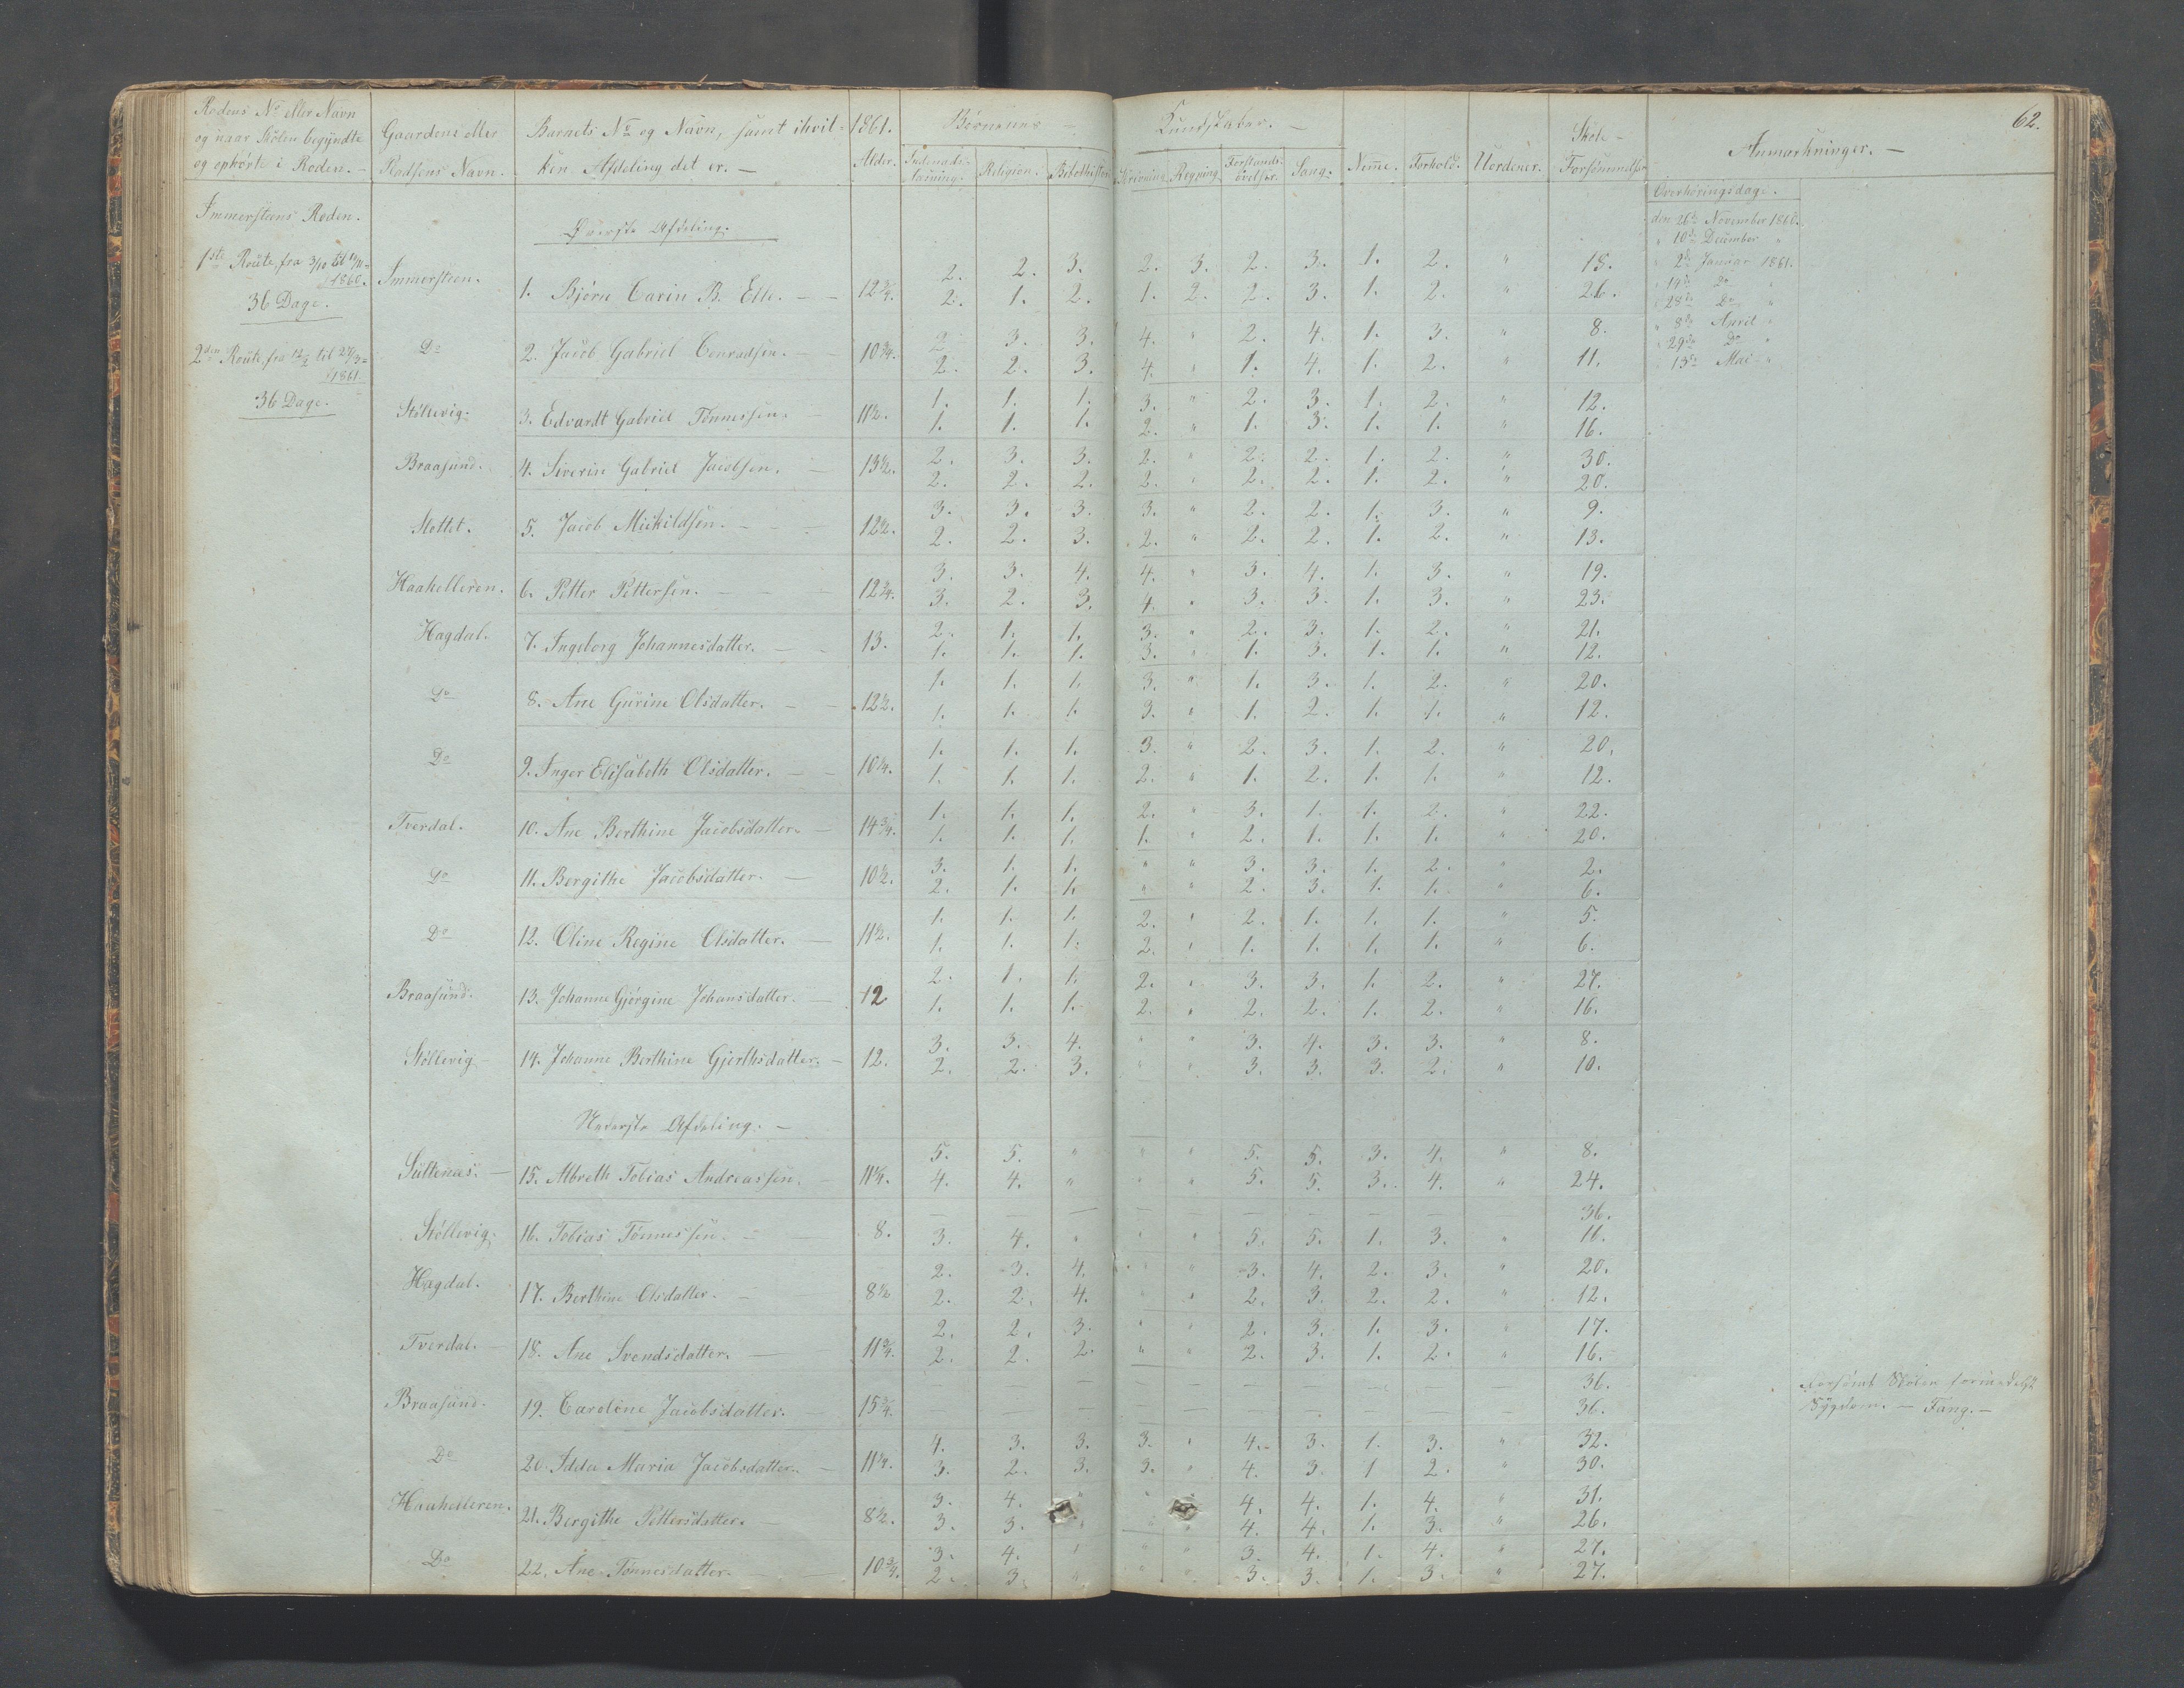 62.
Rodens No eller Navn
og naar Skolen begyndte
og ophørte i Roden. -
Gaardens eller
Pladsens Navn.
Barnets No og Navn, samt i hvil-
ken Afdeling det er. -
1861.
Alder.
Børnenes - Kundskaber. -
Indenads-
læsning. Religion. Bibelhistorie Skrivning Regning Forstands-
øvelser. Sang. Nemme. Forhold. Uordener.
Skole-
Forsømmelser
Anmærkninger. -
Overhøringsdage.
den 26de November 1860.
" 10de December "
" 2den Januar 1861.
" 14de Do "
" 28de Do "
" 8de April "
" 29de Do "
" 13de Mai "
Immersteens Roden.
1ste Route, fra 3/10 til
1860.
36 Dage.
2den Route, fra
1861.
36 Dage.
Øverste Afdeling.
2. 2. 3. 2. 3. 2. 3. 1. 2. " 15.
Immersteen. 1. Bjørn Carin B. Elle. - 12 3/4. 2. 1. 2. 1. 2. 2. 3. 1. 2. " 26.
2. 3. 3. 4. " 2. 4. 1. 3. " 8.
Do 2. Jacob Gabriel Conradsen. - 10 3/4. 2. 2. 3. 4. " 1. 4. 1. 2. " 11.
1. 1. 1. 3. " 2. 3. 1. 2. " 12.
Støllevig. 3. Edvardt Gabriel Tønnessen. - 11 1/2. 1. 1. 1. 2. " 1. 3. 1. 1. " 16.
2. 3. 3. 2. " 2. 2. 1. 2. " 30.
Braasund. 4. Severin Gabriel Jacobsen. - 13 1/2. 2. 2. 2. 2. " 2. 2. 1. 2. " 20.
3. 3. 3. 3. " 2. 2. 1. 3. " 9.
Slottet. 5. Jacob Mickildsen. - 12 1/2. 2. 2. 3. 2. " 2. 2. 1. 2. " 13.
3. 3. 4. 4. " 3. 4. 1. 3. " 19.
Haahelleren. 6. Petter Pettersen. - 12 3/4. 3. 2. 3. 4. " 3. 3. 1. 3. " 23.
2. 1. 1. 3. " 2. 3. 1. 2. " 21.
Hagdal. 7. Ingeborg Johannesdatter. - 13. 1. 1. 1. 3. " 1. 3. 1. 1. " 12.
1. 1. 1. 3. " 1. 3. 1. 2. " 20.
Do 8. Ane Gurine Olsdatter. - 12 1/2. 1. 1. 1. 3. " 1. 2. 1. 1. " 12.
1. 1. 1. 3. " 2. 3. 1. 2. " 20.
Do 9. Inger Elisabeth Olsdatter. - 10 1/4. 1. 1. 1. 2. " 1. 2. 1. 1. " 12.
1. 1. 1. 2. " 3. 1. 1. 2. " 22.
Tverdal. 10. Ane Berthine Jacobsdatter. - 14 3/4. 1. 1. 1. 1. " 2. 1. 1. 1. " 20.
3. 1. 1. " " 3. 3. 1. 2. " 2.
Do 11. Bergithe Jacobsdatter. - 10 1/2. 2. 1. 1. " " 2. 3. 1. 1. " 6.
1. 1. 1. 2. " 2. 1. 1. 1. " 5.
Do 12. Oline Regine Olsdatter. - 11 1/2. 1. 1. 1. 2. " 1. 1. 1. 1. " 6.
2. 1. 1. 2. " 3. 3. 1. 2. " 27.
Braasund. 13. Johanne Gjørgine Johansdatter. - 12 1. 1. 1. 2. " 2. 2. 1. 2. " 16.
3. 3. 4. " " 3. 4. 3. 3. " 8.
Støllevig 14. Johanne Berthine Gjerthsdatter. - 12. 2. 2. 3. " " 3. 3. 3. 2. " 10.
Nederste Afdeling. -
5. 5. " " " 5. 5. 3. 4. " 8.
Sultenæs. - 15. Albreth Tobias Andreassen. - 11 1/4. 4. 4. " " " 5. 5. 3. 4. " 24.
- - - - - - - - - - - 36.
Støllevig. 16. Tobias Tønnessen. - 8. 3. 4. " " " 5. 5. 1. 3. " 16.
2. 3. 4. " " 3. 4. 2. 3. " 20.
Hagdal. 17. Berthine Olsdatter. - 8 1/2 2. 2. 4. " " 2. 3. 2. 2. " 12.
2. 2. 3. " " 2. 3. 1. 3. " 17.
Tverdal. - 18. Ane Svendsdatter. - 11 3/4. 2. 2. 2. " " 2. 3. 1. 2. " 16.
- - - - - - - - - - 36. Forsømt Skolen formedelst
Braasund. 19. Caroline Jacobsdatter. 15 3/4. - - - - - - - - - - 36. Sygdom. - Fang. -
4. 3. 3. 3. " 4. 3. 1. 3. " 32.
Do 20. Idda Maria Jacobsdatter. - 11 1/4. 3. 2. 3. 3. " 4. 3. 1 2. " 30.
3. 4. " " " 4. 4. 1. 4. " 31.
Haahelleren. 21. Bergithe Pettersdatter. - 8 1/2. 3. 3. " " " 4. 4. 1. 3. " 26.
3. 4. " " " 3. 4. 1. 4. " 27.
Do 22. Ane Tønnesdatter. - 10 3/4. 2. 3. " " " 3. 3. 1. 3. " 27.